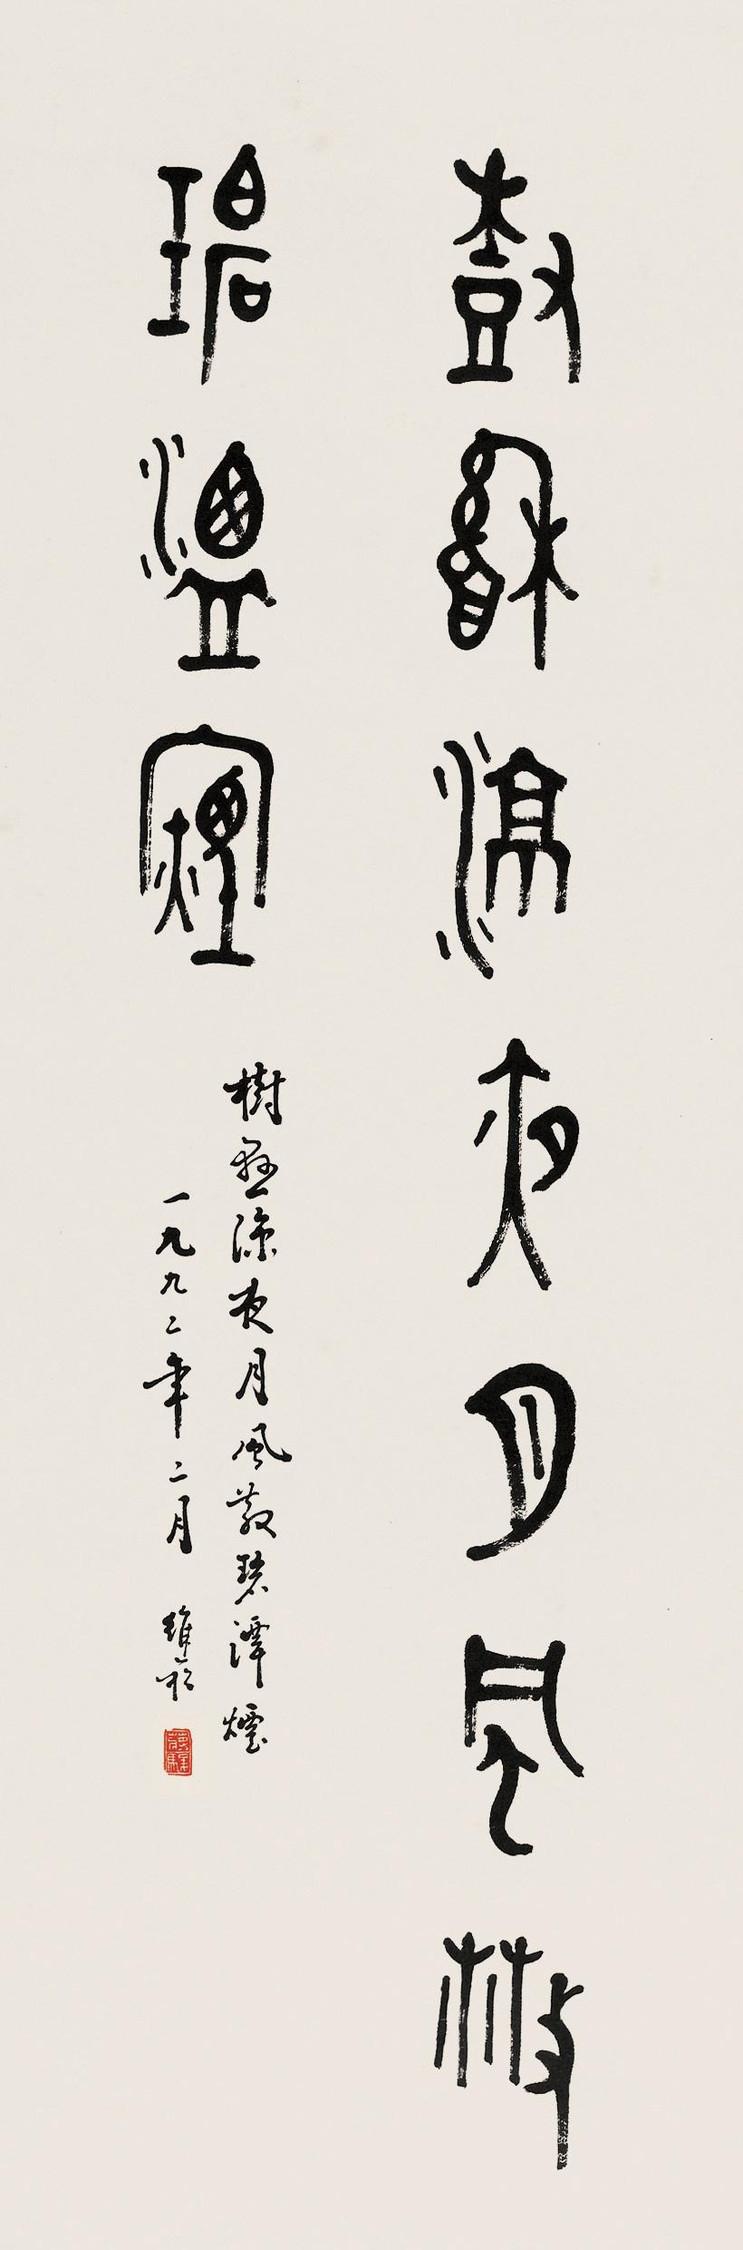 樹懸涼夜月風散
碧潭煙
樹懸涼夜月風散碧潭煙
一九九二年二月 維祺